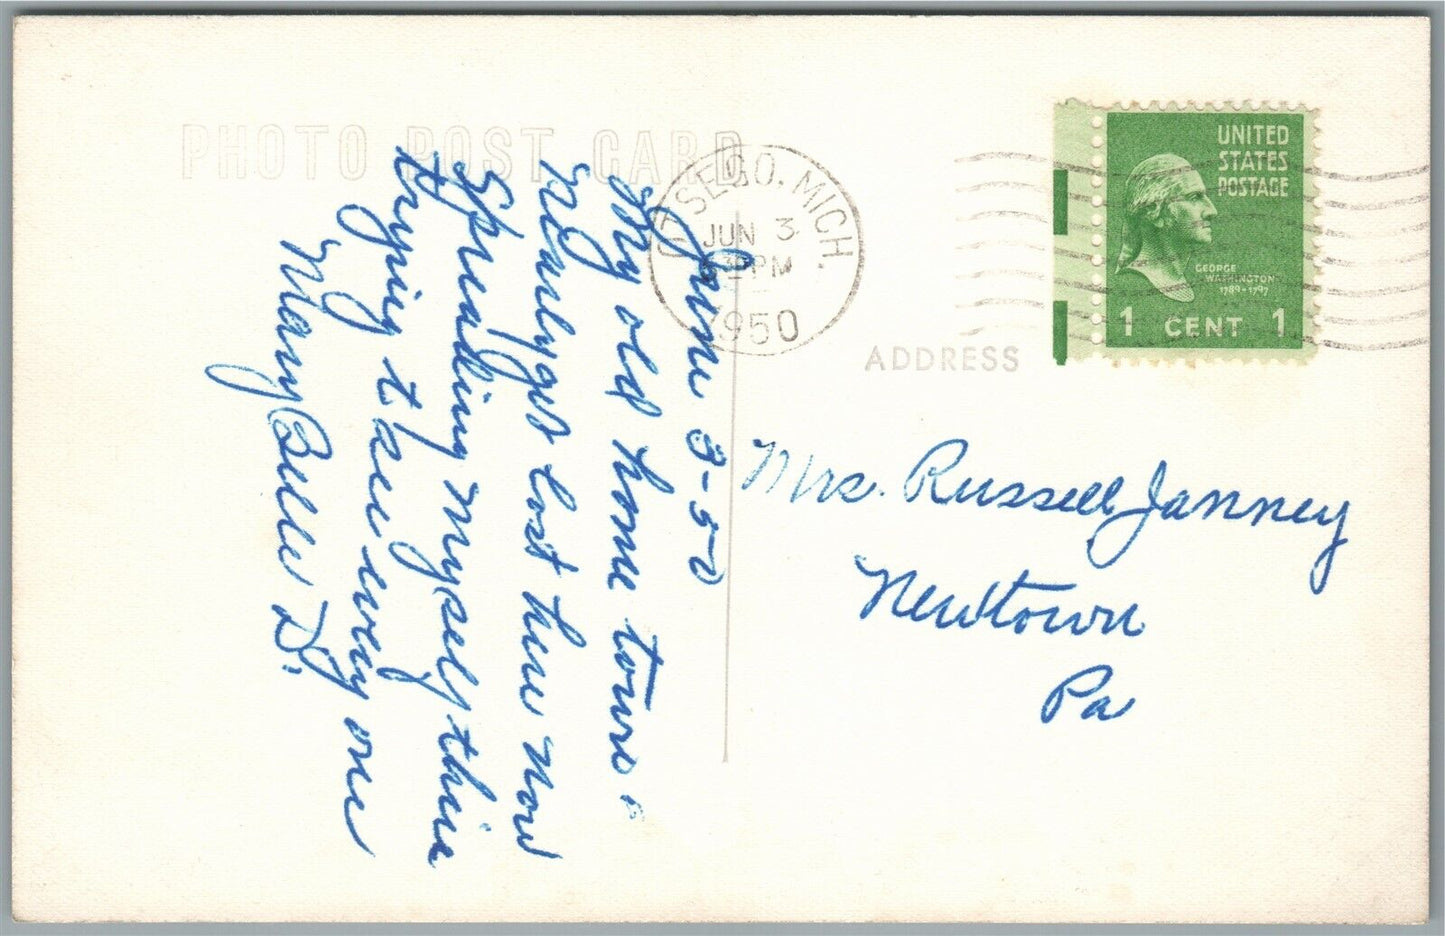 PHOTO POST CARD
June 3-50
My old home town.
Nearly get lost here now
Spreading myself thin
trying to see every one
Mary Belle D.
OTSEGO, MICH.
JUN 3
PM
1950
UNITED
STATES
POSTAGE
GEORGE
WASHINGTON
1789-1797
1 CENT 1
ADDRESS
Mrs. Russell Janney
Newtown
Pa